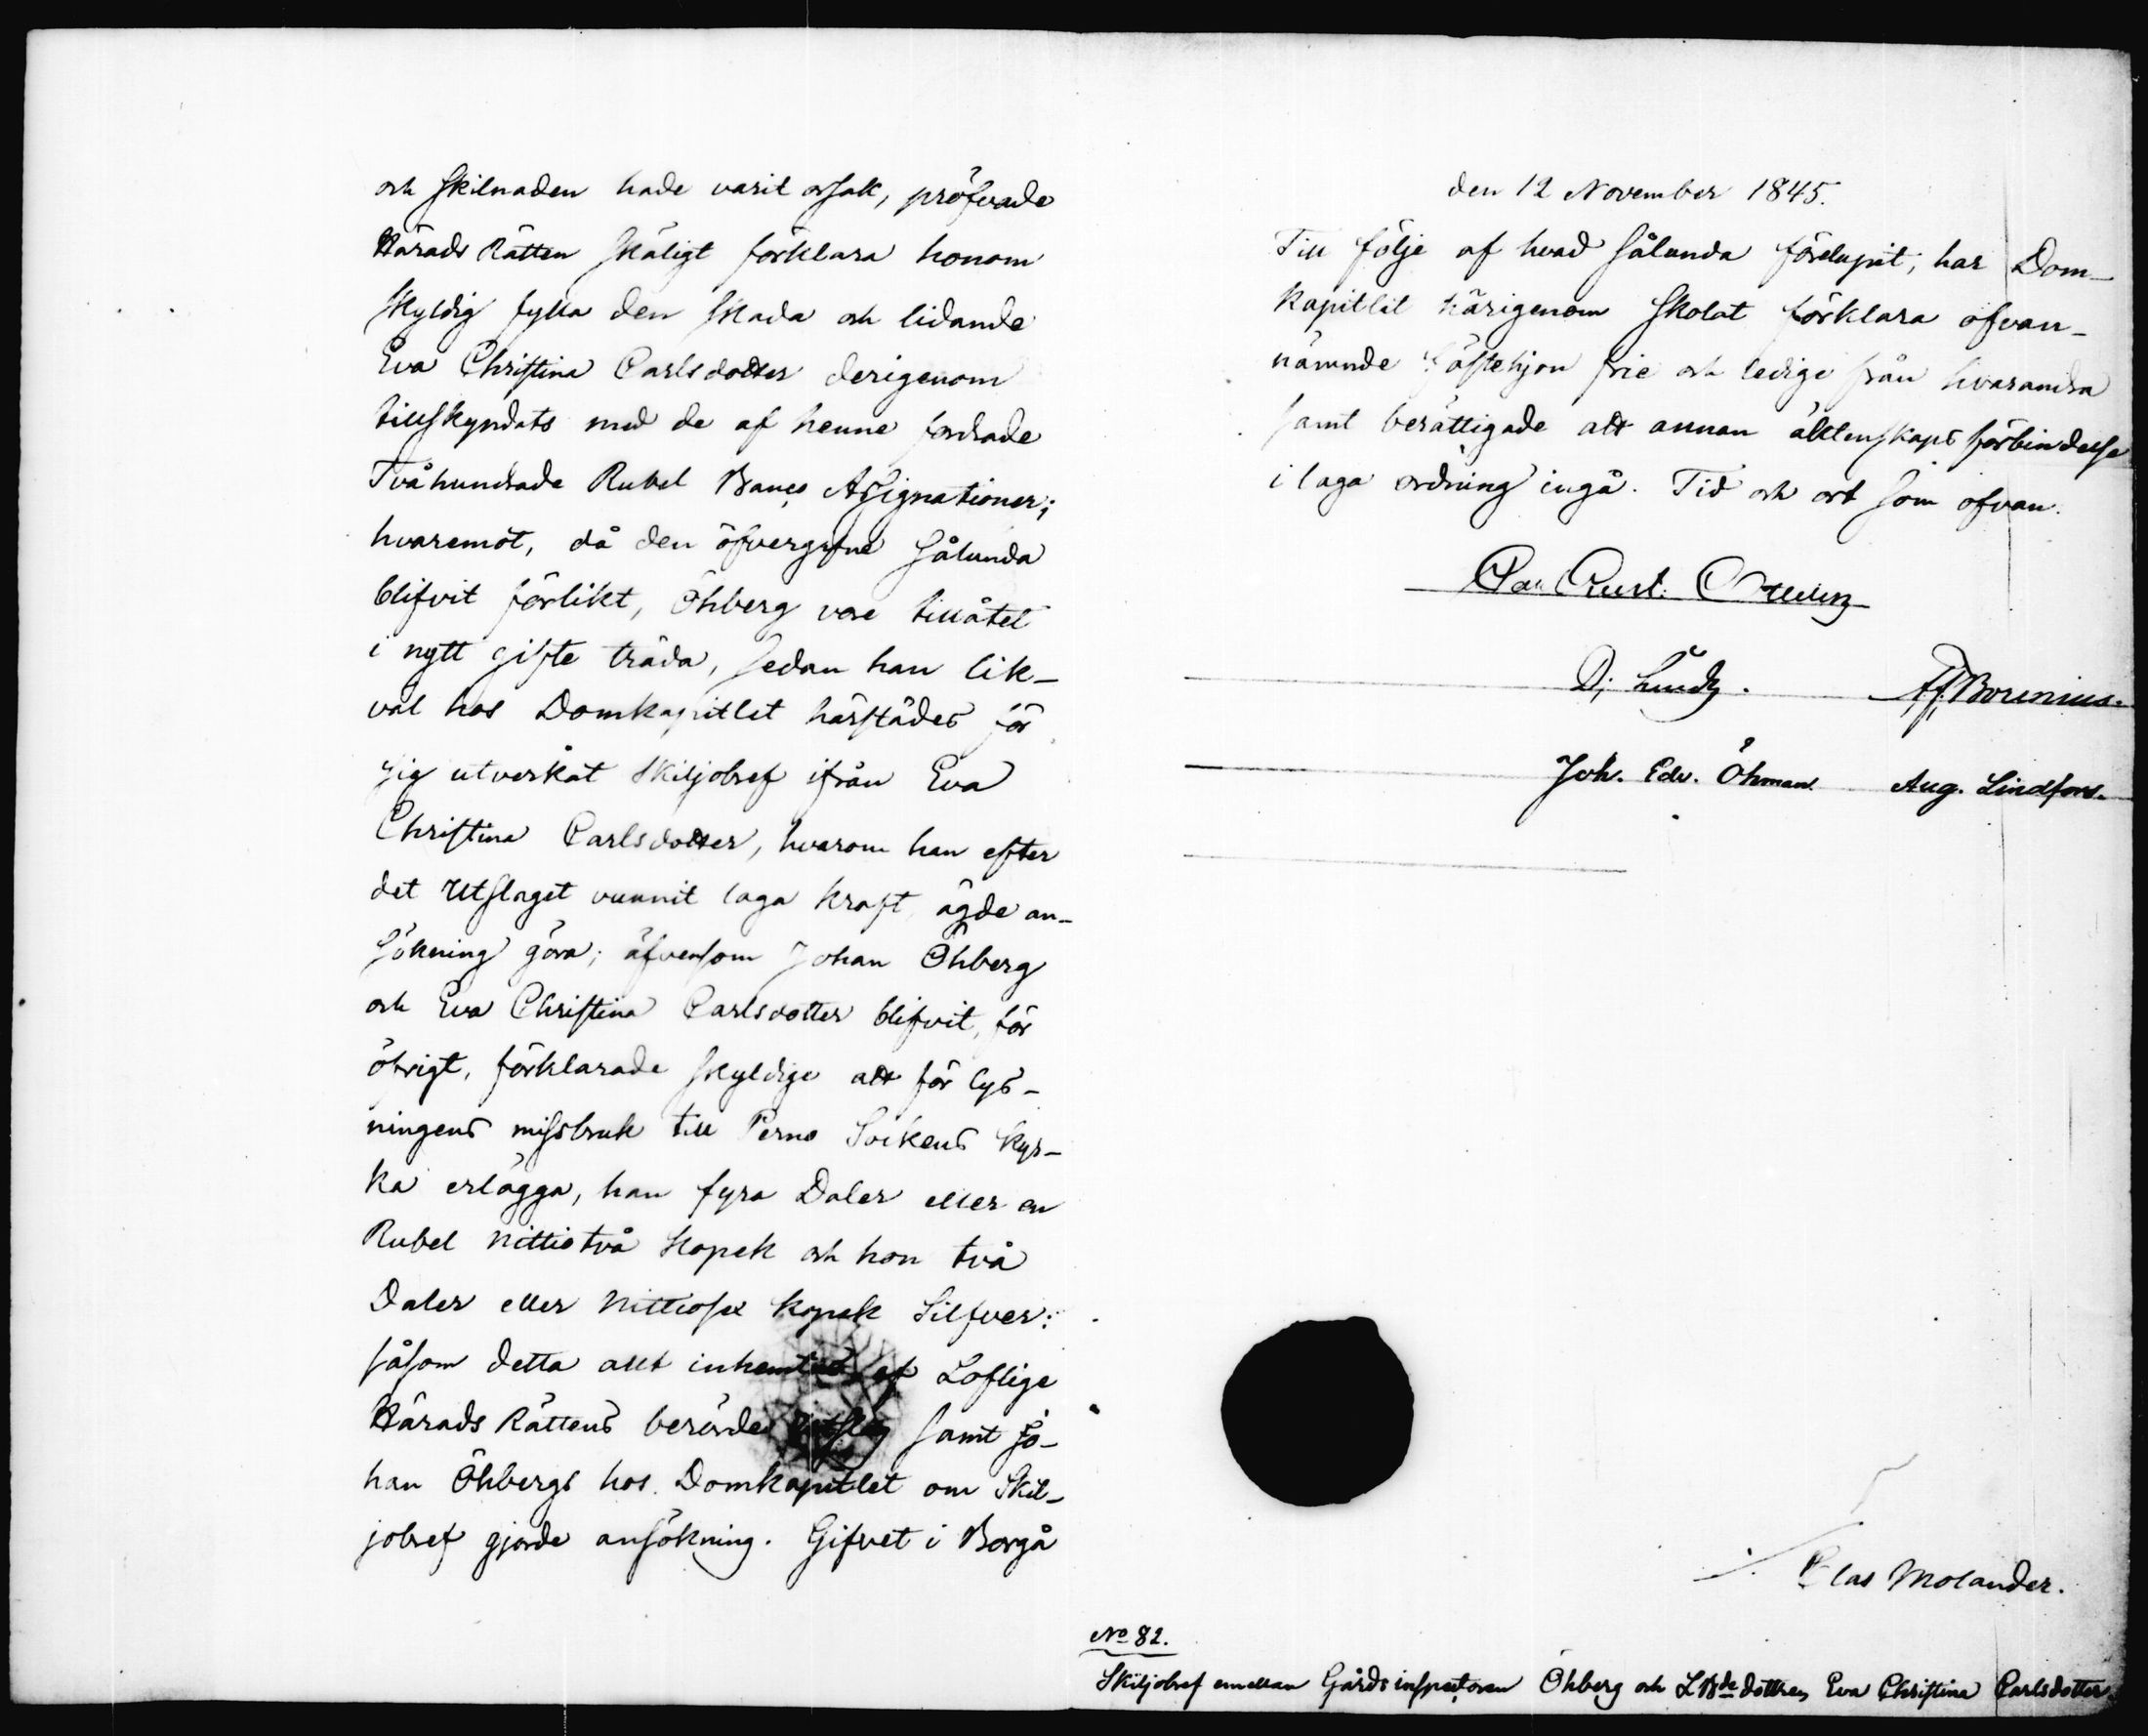 och skilnaden hade varit orsak, pröfvade
Härads Rätten skäligt förklara honom
skyldig fylla den skada och lidande
Eva Christina Carlsdotter derigenom
tillskyndats med de af henne fordrade
Tvåhundrade Rubel Banco Assignationer;
hvaremot, då den öfvergifne sålunda
blifvit förlikt, Öhberg vore tillåtet
i nytt gifte träda, sedan han lik-
väl hos Domkapitlet härstädes för
sig utverkat Skiljobref ifrån Eva
Christina Carlsdotter, hvarom han efter
det Utslaget vunnit laga kraft ägde an-
sökning göra; äfvensom Johan Öhberg
och Eva Christina Carlsdotter blifvit, för
öfrigt, förklarade skyldige att för lys-
ningens missbruk till Perno Sockens kyr-
ka erlägga, han fyra Daler eller en
Rubel nittiotvå Kopek och hon två
Daler eller nittiosex kopek Silfver:
såsom detta allt inhemtas af Loflige
Härads Rättens berörde Utslag samt Jo-
han Öhbergs hos Domkapitlet om Skil-
jobref gjorde ansökning. Gifvet i Borgå
den 12 November 1845.
Till följe af hvad sålunda förelupit, har Dom-
kapitlet härigenom skolat förklara ofvan-
nämnde Fästehjon frie och ledige från hvarandra
samt berättigade att annan äktenskaps förbindelse
i laga ordning ingå. Tid och ort som ofvan.
Borenius.
Joh. Edv. Öhman. Aug. Lindfors.
Clas Molander.
No 82.
Skiljobref emellan Gårdsinspectoren Öhberg och LBde dottren Eva Christina Carlsdotter